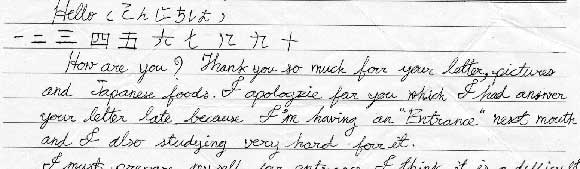 Hello (こんにちは)
一 二 三 四 五 六 七 八 九 十
How are you? Thank you so much forr your letter, pictures
and Japanese foods. I apologzie for you which I had answer
your letter late because I'm having an "Entrance" next mouth
and I also studying very hard forr it.
I must prepare myself for entrance I think it is a difficult